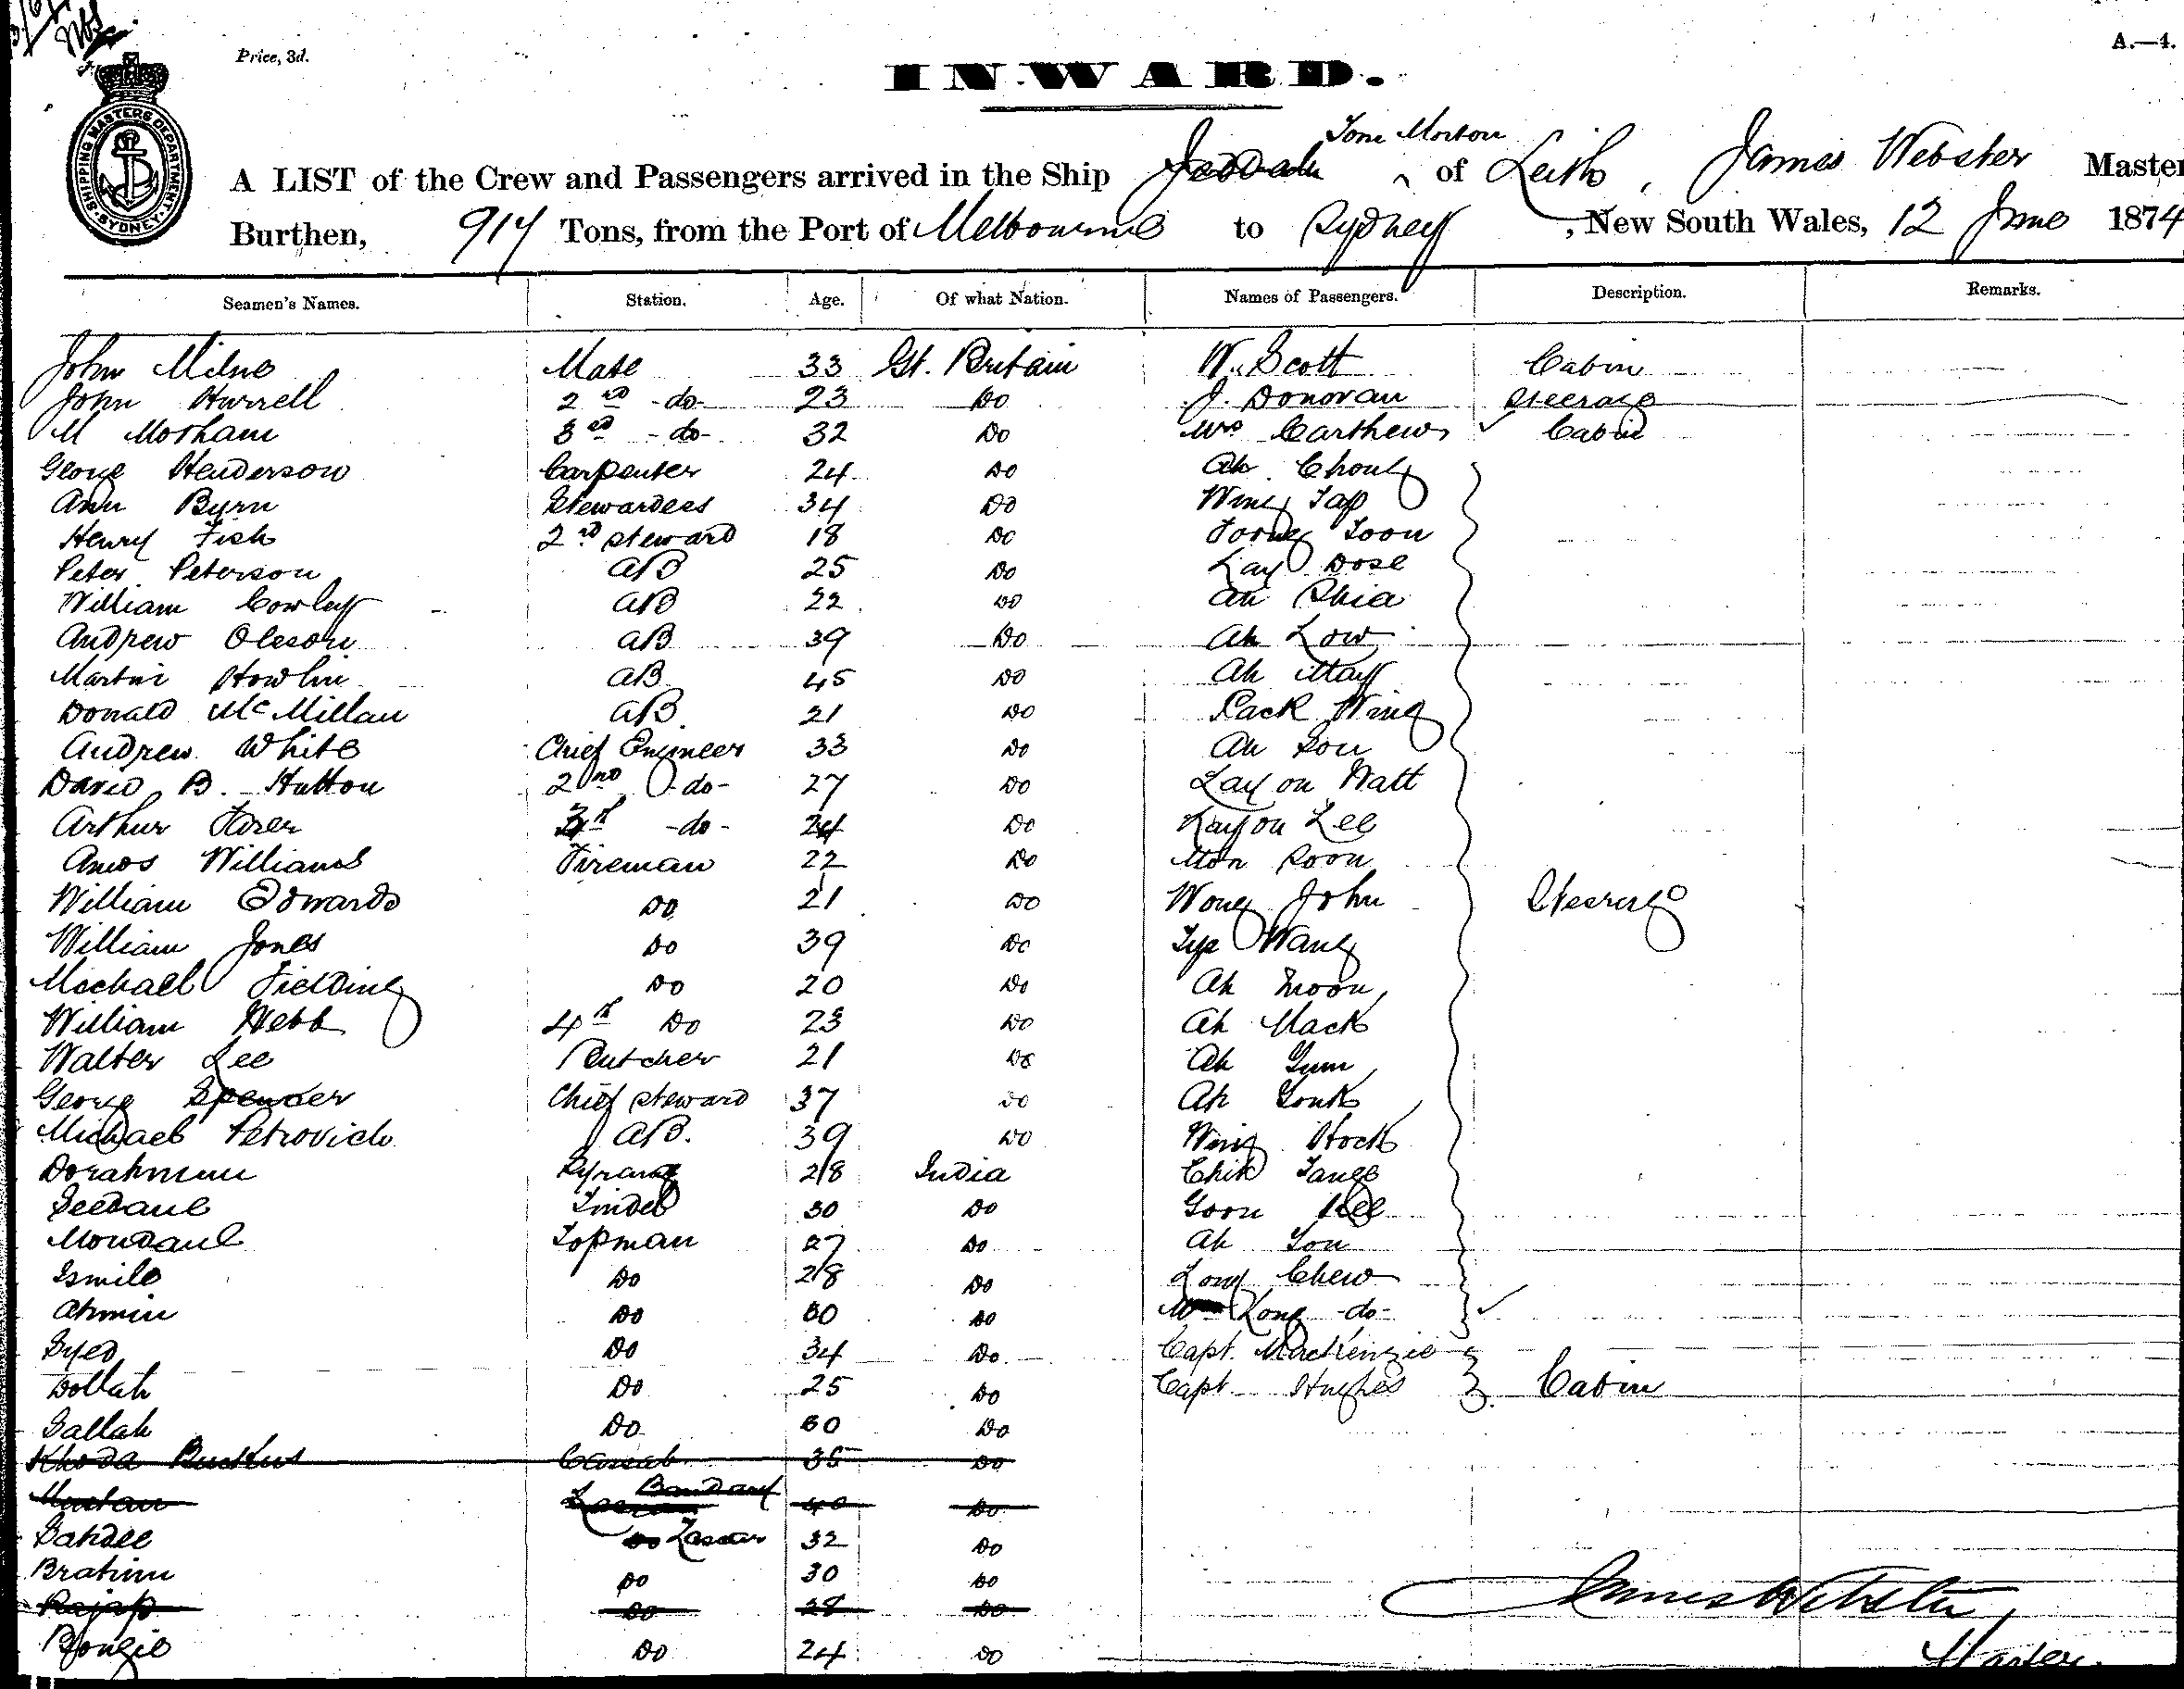 Price, 3d.
A.—4.
INWARD.
SHIPPING MASTERS DEPARTMENT. SYDNEY.
Tom Morton
A LIST of the Crew and Passengers arrived in the Ship Jeddah of Leith, James Webster Master
Burthen, 914 Tons, from the Port of Melbourne to Sydney, New South Wales, 12 June 1874
Seamen's Names. Station. Age. Of what Nation. Names of Passengers. Description. Remarks.
John Milne Mate 33 Gt. Britain W. Scott Cabin
John Hurrell 2nd -do- 23 Do J. Donovan Steerage
M Motham 3rd -do- 32 Do Mrs Carthews Cabin
George Henderson Carpenter 24 Do Ah Chong
Ann Byrn Stewardess 34 Do Wing Tap
Henry Fish 2nd Steward 18 Do Toon
Peter Peterson AB 25 Do Lay Dose
William Cowley AB 22 Do Ah Shia
Andrew Oleson AB 39 Do Ah Low
Martin Howlin AB 45 Do Ah May
Donald McMillan AB 21 Do Pack Wing
Andrew White Chief Engineer 33 Do Ah Sou
David B. Hutton 2nd -do- 27 Do Lay on Watt
Arthur 3rd -do- 24 Do Kay on Lee
Amos Williams Fireman 22 Do Soon
William Edwards Do 21 Do Wong John Steerage
William Jones Do 39 Do Tye Wang
Michael Fielding Do 20 Do Ah Moon
William Webb 4th Do 23 Do Ah Mack
Walter Lee Butcher 21 Do Ah Gum
George Spencer Chief Steward 37 Do Ah Gonk
Michael Petrovich AB. 39 Do Wing Hock
Dorahman Syrang 28 India Chin
Seedaul Tindel 30 Do Goon Kee
Moudaul Topman 27 Do Ah You
Ismile Do 28 Do Long Chew
Ahmin Do 30 Do Kong -do-
Syed Do 34 Do Capt. Mackenzie
Dollah Do 25 Do Capt Hughes Cabin
Sallah Do 30 Do
Khoda Buckus Cassab 35 Do
Bandary
40 Do
Sahdee Do Lascar 32 Do
Brahim Do 30 Do
Rajap Do 28 Do
Bongie Do 24 Do
James Webster
Master.